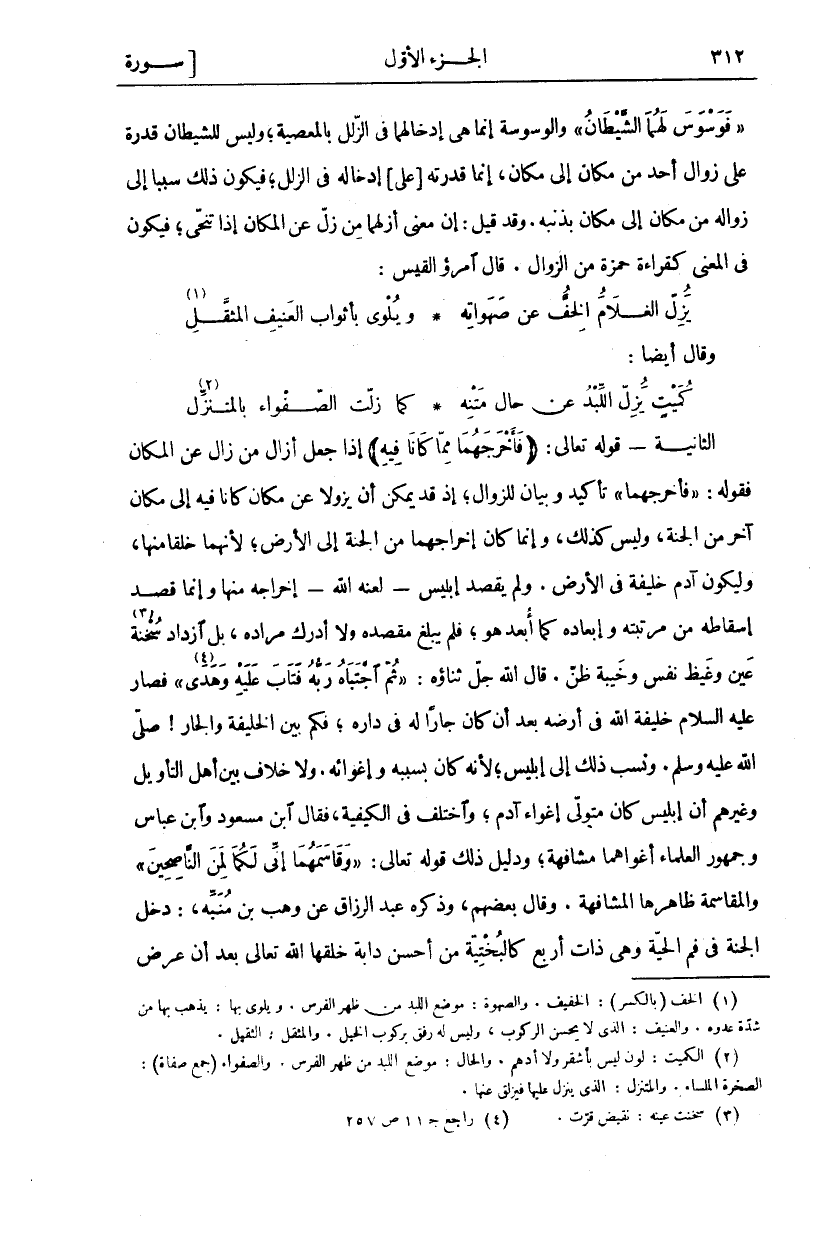 ٣١٢ الجزء الأول [ سورة
« فَوَسْوَسَ لَهُمَا الشَّيْطَانُ » والوسوسة إنما هى إدخالهما فى الزّلل بالمعصية؛ وليس للشيطان قدرة
على زوال أحد من مكان إلى مكان، إنما قدرته [على] إدخاله فى الزلل؛ فيكون ذلك سببا إلى
زواله من مكان إلى مكان بذنبه. وقد قيل: إن معنى أزلهما مِن زلّ عن المكان إذا تنحّى؛ فيكون
فى المعنى كقراءة حمزة من الزوال . قال آمرؤ القيس :
يُزِلّ الغـــلَامُ الخِفُّ عن صَهَواتِه * ويُلْوِى بأثوابِ العَنيفِ المثقَّــلِ (١)
وقال أيضا :
كُمَيْتٍ يُزِلّ اللّبْدُ عن حال مَتْنِه * كما زلّت الصّــفْواء بالمتنزّل (٢)
الثانيــة — قوله تعالى: ﴿ فَأَخْرَجَهُمَا مِمَّا كَانَا فِيهِ ﴾ إذا جعل أزال من زال عن المكان
فقوله : «فأخرجهما» تأكيد وبيان للزوال؛ إذ قد يمكن أن يزولا عن مكان كانا فيه إلى مكان
آخر من الجنة، وليس كذلك، وإنما كان إخراجهما من الجنة إلى الأرض؛ لأنهما خلقا منها،
وليكون آدم خليفة فى الأرض . ولم يقصد إبليس — لعنه الله — إخراجه منها وإنما قصــد
إسقاطه من مرتبته وإبعاده كما أُبعد هو؛ فلم يبلغ مقصده ولا أدرك مراده، بل آزداد سُخْنة (٣)
عَين وغَيظ نفس وخَيبة ظنّ . قال الله جلّ ثناؤه : « ثُمَّ آجْتَبَاهُ رَبُّهُ فَتَابَ عَلَيْهِ وَهَدَى » (٤) فصار
عليه السلام خليفة الله فى أرضه بعد أن كان جارًا له فى داره؛ فكم بين الخليفة والجار ! صلّى
الله عليه وسلم. ونسب ذلك إلى إبليس؛ لأنه كان بسببه وإغوائه. ولا خلاف بين أهل التأويل
وغيرهم أن إبليس كان متولّى إغواء آدم؛ وآختلف فى الكيفية، فقال آبن مسعود وآبن عباس
وجمهور العلماء أغواهما مشافهة؛ ودليل ذلك قوله تعالى: « وَقَاسَمَهُمَا إِنِّى لَكُمَا لَمِنَ النَّاصِحِينَ »
والمقاسمة ظاهرها المشافهة . وقال بعضهم، وذكره عبد الرزاق عن وهب بن مُنَبِّه، : دخل
الجنة فى فم الحيّة وهى ذات أربع كالبُخْتِيّة من أحسن دابة خلقها الله تعالى بعد أن عرض
(١) الخف (بالكسر) : الخفيف . والصهوة : موضع اللبد من ظهر الفرس . ويلوى بها : يذهب بها من
شدّة عدوه . والعنيف : الذى لا يحسن الركوب، وليس له رفق بركوب الخيل . والمثقل : الثقيل .
(٢) الكميت : لون ليس بأشقر ولا أدهم . والحال : موضع اللبد من ظهر الفرس . والصفواء (جمع صفاة) :
الصخرة الملساء . والمتنزل : الذى ينزل عليها فيزلق عنها .
(٣) سخنت عينه : نقيض قرّت . (٤) راجع جـ ١١ ص ٢٥٧